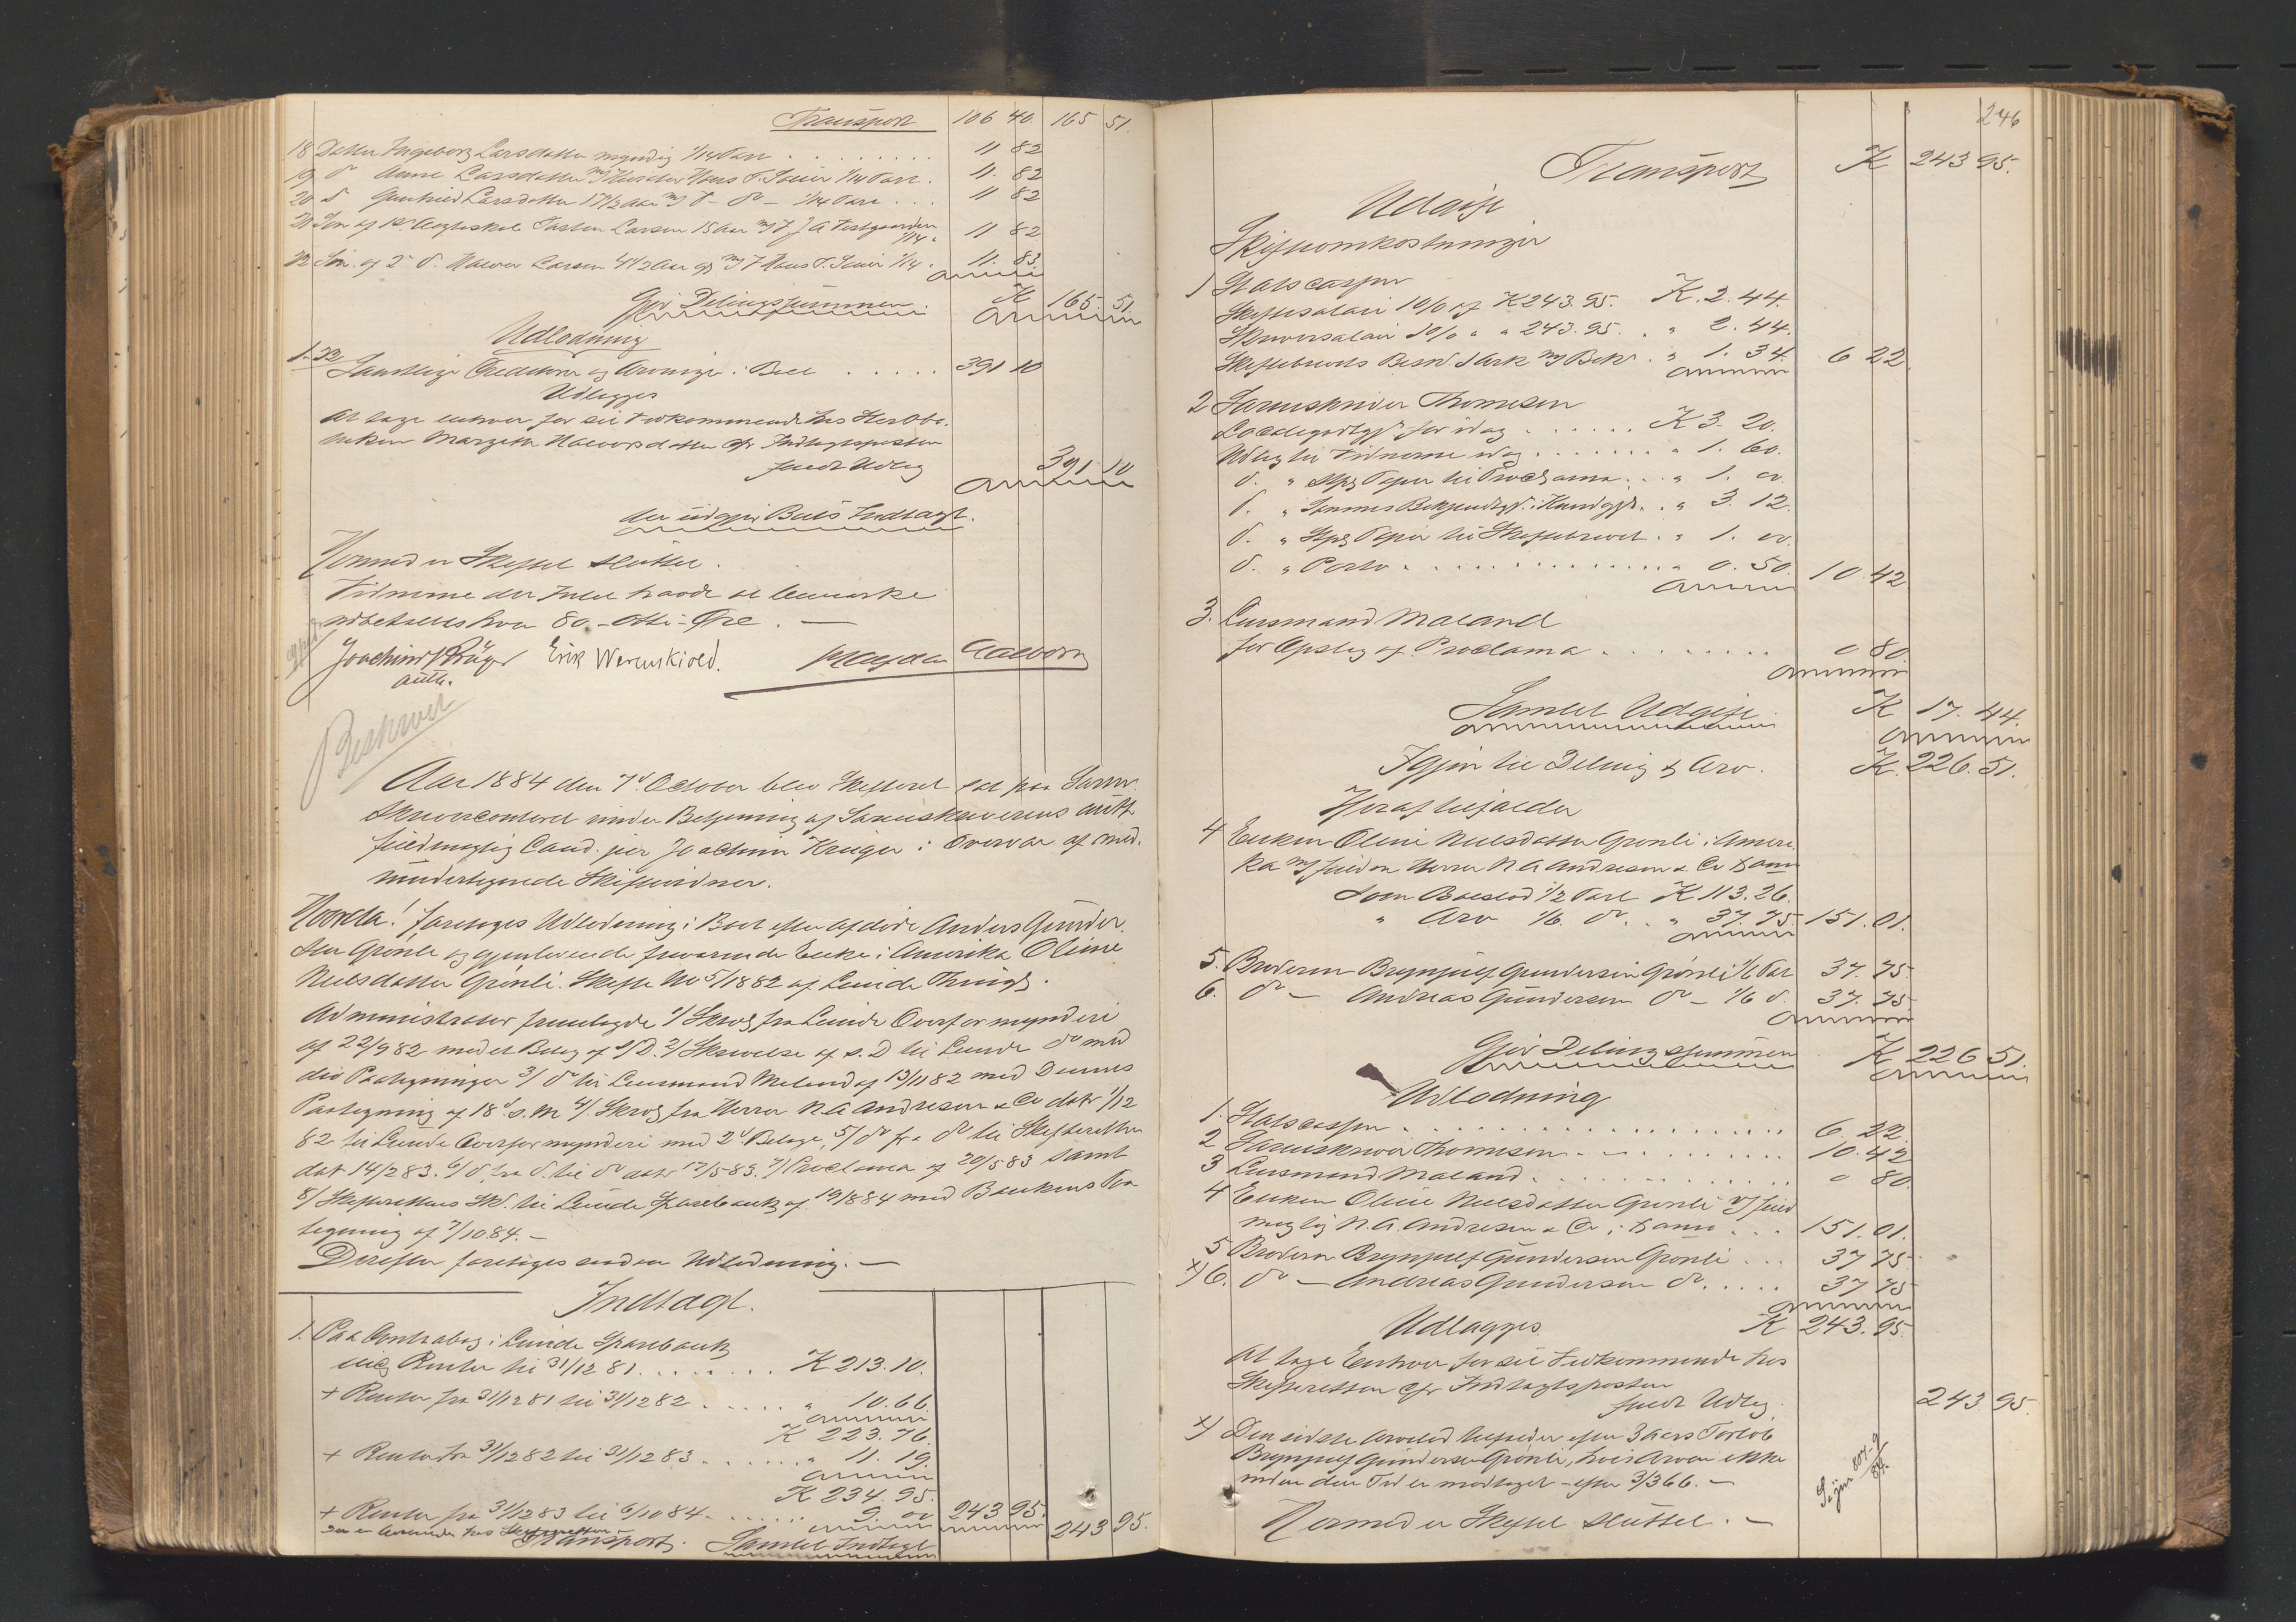 Transport 106 40. 165 51.
18 Datter Ingeborg Larsdatter myndig 1/14 Part . . . 11 82
19 do Anne Larsdatter Hans T. 1/14 Part . 11. 82
20 d Gunhild Larsdatter 17 1/2 Aar do 1/14 Part . . . 11 82
21 Søn af 1st Ægteskab Larsen 15 Aar 1/14 " 11 82
22 Søn af 2d d. Halvor Larsen 4 1/2 Aar Hans T. 1/14 . 11. 83.
Gjør Delingssummen. K 165. 51.
Udlodning
1-22
Samtlige Creditorer og Arvinger i Boet . . . . . 391 10
Udlægges
at tage enhver for sit Tilkommende hos
Enken Margith Halvorsdatter cfr Indtægtsposten
fuldt Udlæg 391 10
der udgjør Boets Indtægt.
Hermed er Skiftet sluttet.
Vidnerne der Intet havde at bemærke
udbetaltes hver 80 - otti - Øre. —
Joachim Krüger Erik Werenskiold.
auth.
Beskrevet
Aar 1884 den 7d October blev Skifteret sat paa Soren-
skrivercontoret under Betjening af Sorenskriverens auth.
fuldmægtig Cand. jur Joachim Krüger i Overvær af med-
undertegnede Skiftevidner.
Hvorda! foretoges Udlodning i Boet efter afdøde Anders Gunder-
sen Grønli og gjenlevende fraværende Enke i Amerika Oline
Neelsdatter Grønli. Skifte No 5/1882 af Lunde Thingl.
Administrator fremlagde 1/ Skriv fra Lunde Overformynderi
af 22/9 82 med et Bilag af s/D. 2/ Skrivelse af s. D til Lunde do med
dis Paategninger 3/ do til Lensmand Moland af 13/11 82 med Dennes
Paategning af 18d s. M 4/ Skriv fra Herrer N. A. Andresen & Co dat 1/12
82 til Lunde Overformynderi med 2d Bilage, 5/ do fra do til Skifteretten
dat 14/2 83. 6/ d. fra d. til do dat 12/5 83. 7/ Proclama af 20/5 83 samt
8/ Skifterettens Sk. til Lunde Sparebank af 19/8 84 med Bankens Paa
tegning af 7/10 84. —
Derefter foretoges saadan Udlodning. —
Indtægt.
1. Paa Contrabog i Lunde Sparebank
Renter til 31/12 81 . . . . . . . K 213. 10.
+ Renter fra 31/12 81 til 31/12 82 . . . . . . " 10. 66.
K 223. 76.
+ Renter fra 31/12 82 til 31/12 83 . . . . . . " 11. 19.
K 234. 95.
+ Renter fra 31/12 83 til 6/10 84 . . . . . . 9. 00 243 95.
Transport. Samlet Indtægt 243 95.
246
Transport K 243 95.
Udgift
Skifteomkostninger
1 Statscassen
Skiftesalair 1% af K 243. 95. K. 2. 44.
Skriversalair 1% " " 243. 95. . " 2. 44.
Skiftebrevets . " 1. 34. 6 22
2 Sorenskriver Thomesen
for idag . . . . . . K 3. 20.
Udlæg til Vidnerne idag . . . . . . . " 1. 60.
d. " Papir til Proclama . . . " 1. 00.
d. " Sammes . . " 3. 12.
d. " Papir til Skiftebrevet . " 1. 00.
d. " Porto . . . . . . . . . . . . . . " 0. 50. 10. 42
3. Lensmand Moland
for Opslag af Proclama . . . . . . . . . 0 80
Samlet Udgift K 17. 44.
Igjen til Deling og Arv. K. 226. 51.
Heraf tilfalder
4 Enken Oline Neelsdatter Grønli i Ameri-
ka Herrer N. A. Andresen & Co
som Boeslod 1/2 Part K. 113. 26.
" Arv 1/6 do . . " 37. 75 151. 01.
5. Broderen Brynjulf Gundersen Grønli 1/6 Par 37. 75.
6. do — Andreas Gundersen do — 1/6 d. 37. 75
Gjør Delingssummen K. 226 51.
Udlodning
1. Statscassen . . . . . . . . . . . . . . . . 6. 22.
2 Sorenskriver Thomesen . . . . . . . . . . 10. 42
3 Lensmand Moland . . . . . . . . . . . . . 0 80.
4 Enken Oline Neelsdatter Grønli fuld
mægtig N. A. Andresen & Co . . . 151. 01.
5 Broderen Brynjulf Gundersen Grønli . . . 37 75.
x) 6. do — Andreas Gundersen do . . . . . 37 75
Udlægges K 243. 95.
At tage Enhver for sit Tilkommende hos
Skifteretten cfr Indtægtsposten
fuldt Udlæg. 243. 95.
x) Den sidste Arvelod efter 3 Aars Forløb
Brynjulf Gundersen Grønli, hvis Arven ikke
inden den Tid er modtaget - efter 3/3 66. —
Hermed er Skiftet sluttet. —